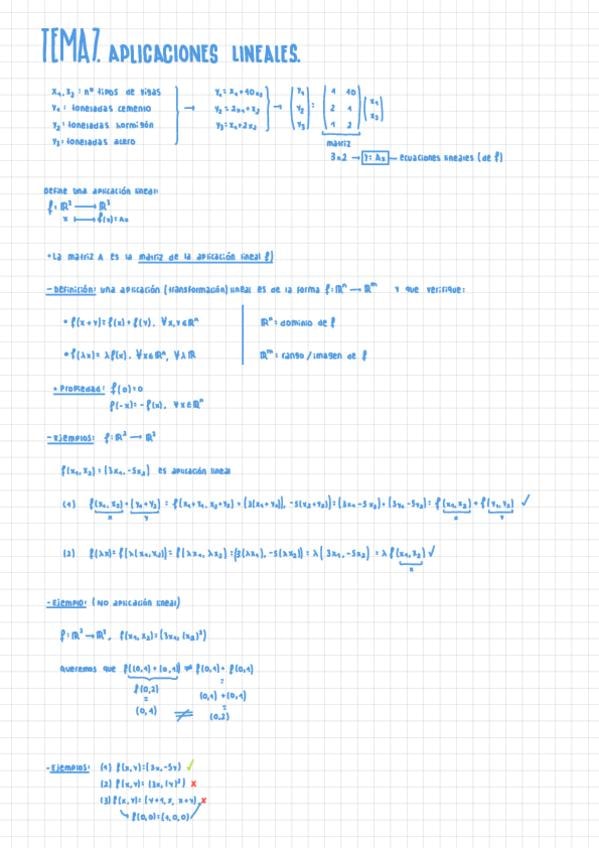 TEMA 7. APLICACIONES LINEALES.
x₁, x₂ : nº tipos de vigas
y₁ : toneladas cemento
y₂ : toneladas hormigón
y₃ : toneladas acero
→
y₁ = x₁ + 10x₂
y₂ = 2x₁ + x₂
y₃ = x₁ + 2x₂
→
(y₁ y₂ y₃) : (1 10
2 1
1 2) (x₁ x₂)
matriz
3x2 → y = Ax → ecuaciones lineales (de f)
Define una aplicación lineal:
f: ℝ² → ℝ³
x ↦ f(x) = Ax
• La matriz A es la matriz de la aplicación lineal f)
- Definición: una aplicación (transformación) lineal es de la forma f: ℝⁿ → ℝᵐ y que verifique:
• f(x+y) = f(x) + f(y), ∀x,y∈ℝⁿ
ℝⁿ : dominio de f
• f(λx) = λf(x), ∀x∈ℝⁿ, ∀λℝ
ℝᵐ : rango/imagen de f
• Propiedad: f(0) = 0
f(-x) = -f(x), ∀x∈ℝⁿ
- Ejemplos: f: ℝ² → ℝ²
f(x₁, x₂) = (3x₁, -5x₂) es aplicación lineal
(1) f(x₁, x₂) + (y₁ + y₂) = f(x₁ + y₁, x₂ + y₂) = (3(x₁ + y₁), -5(x₂ + y₂)) = (3x₁ - 5x₂) + (3y₁ - 5y₂) = f(x₁, x₂) + f(y₁, y₂) ✓
x y x y
(2) f(λx) = f(λ(x₁, x₂)) = f(λx₁, λx₂) = (3(λx₁), -5(λx₂)) = λ(3x₁, -5x₂) = λ f(x₁, x₂) ✓
x
- Ejemplo: (No aplicación lineal)
f: ℝ² → ℝ², f(x₁, x₂) = (3x₁, (x₂)²)
Queremos que f((0,1) + (0,1)) ≠ f(0,1) + f(0,1)
f(0,2)
=
(0,4)
≠
=
(0,1) + (0,1)
=
(0,2)
- Ejemplos: (1) f(x,y) = (3x, -5y) ✓
(2) f(x,y) = (3x, (y)²) x
(3) f(x,y) = (y+1, x, x+y) x
↳ f(0,0) = (1,0,0)